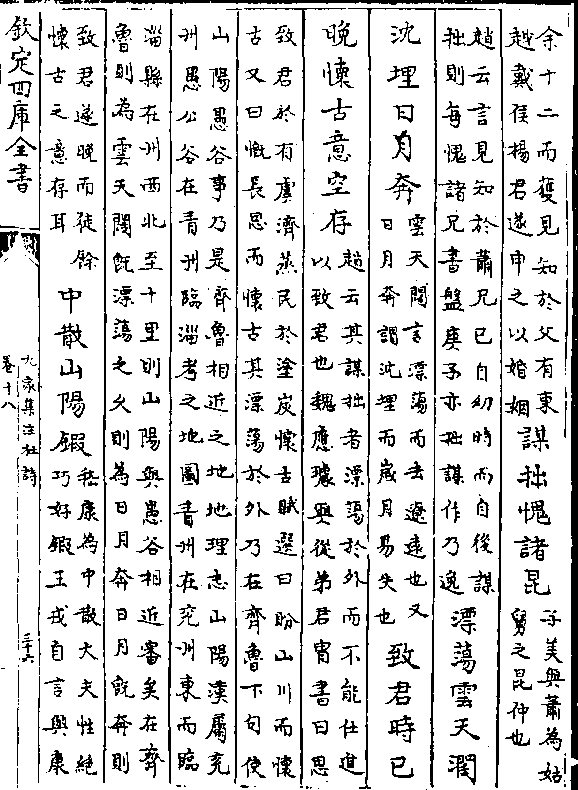 余十二而獲見知於父有東
越戴侯楊君遂申之以婚姻
謀拙愧諸昆
子美與蕭為姑
舅之昆仲也
趙云言見知於蕭兄已自幼時而自後謀
拙則每愧諸兄書盤庚予亦拙謀作乃逸
漂蕩雲天濶
沈埋日月奔
雲天闊言漂蕩而去遼遠也又
日月奔謂沈埋而歲月易失也
致君時已
晚懷古意空存
趙云其謀拙者漂蕩於外而不能仕進
以致君也魏應璩與從弟君胄書曰思
致君於有虞濟蒸民於塗炭懷古賦選曰盼山川而懷
古又曰慨長思而懷古其漂蕩於外乃在齊魯下句使
山陽愚谷事乃是齊魯相近之地地理志山陽漢屬兖
州愚公谷在青州臨淄考之地圖青州在兖州東而臨
淄縣在州西北至十里則山陽與愚谷相近審矣在齊
魯則為雲天闊既漂蕩之乆則為日月奔日月既奔則
致君遂晚而徒餘
懷古之意存耳
中散山陽鍛
嵇康為中散大夫性絕
巧好鍛王戎自言與康
欽定四庫全書
九家集注杜詩
卷十八
三十六